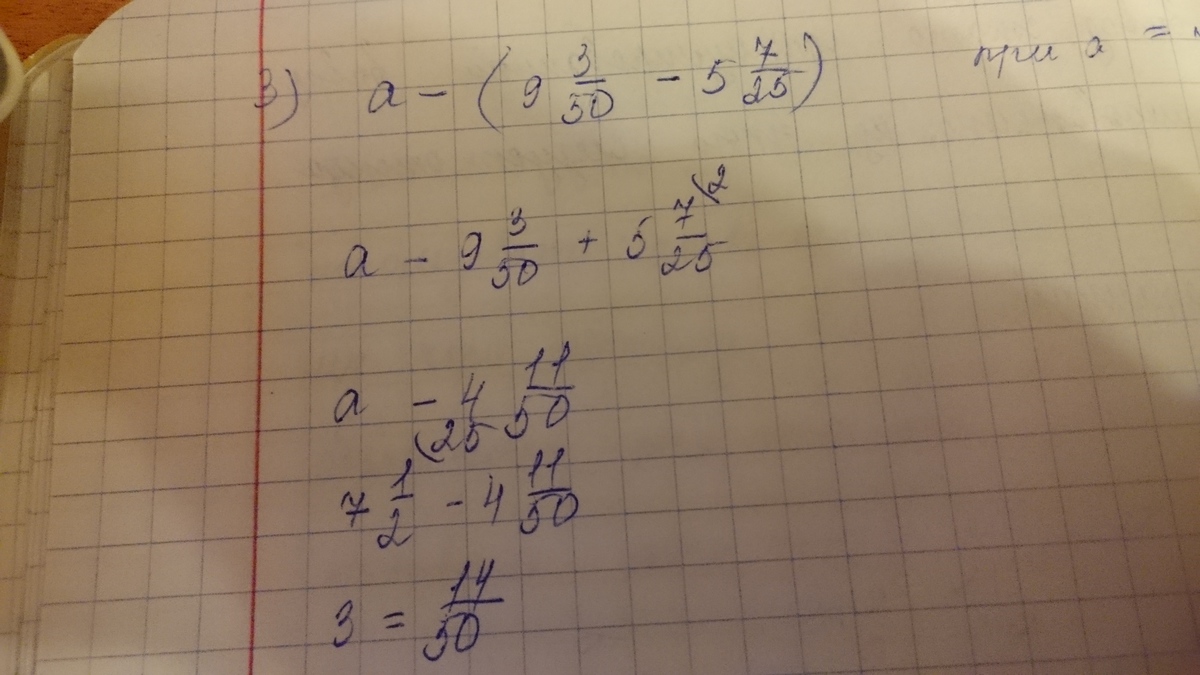 3) a - (9 3/50 - 5 7/25) при a =
a - 9 3/50 + 5 7/25 (2
a - 4 11/50
(25
7 1/2 - 4 11/50
3 = 14/50